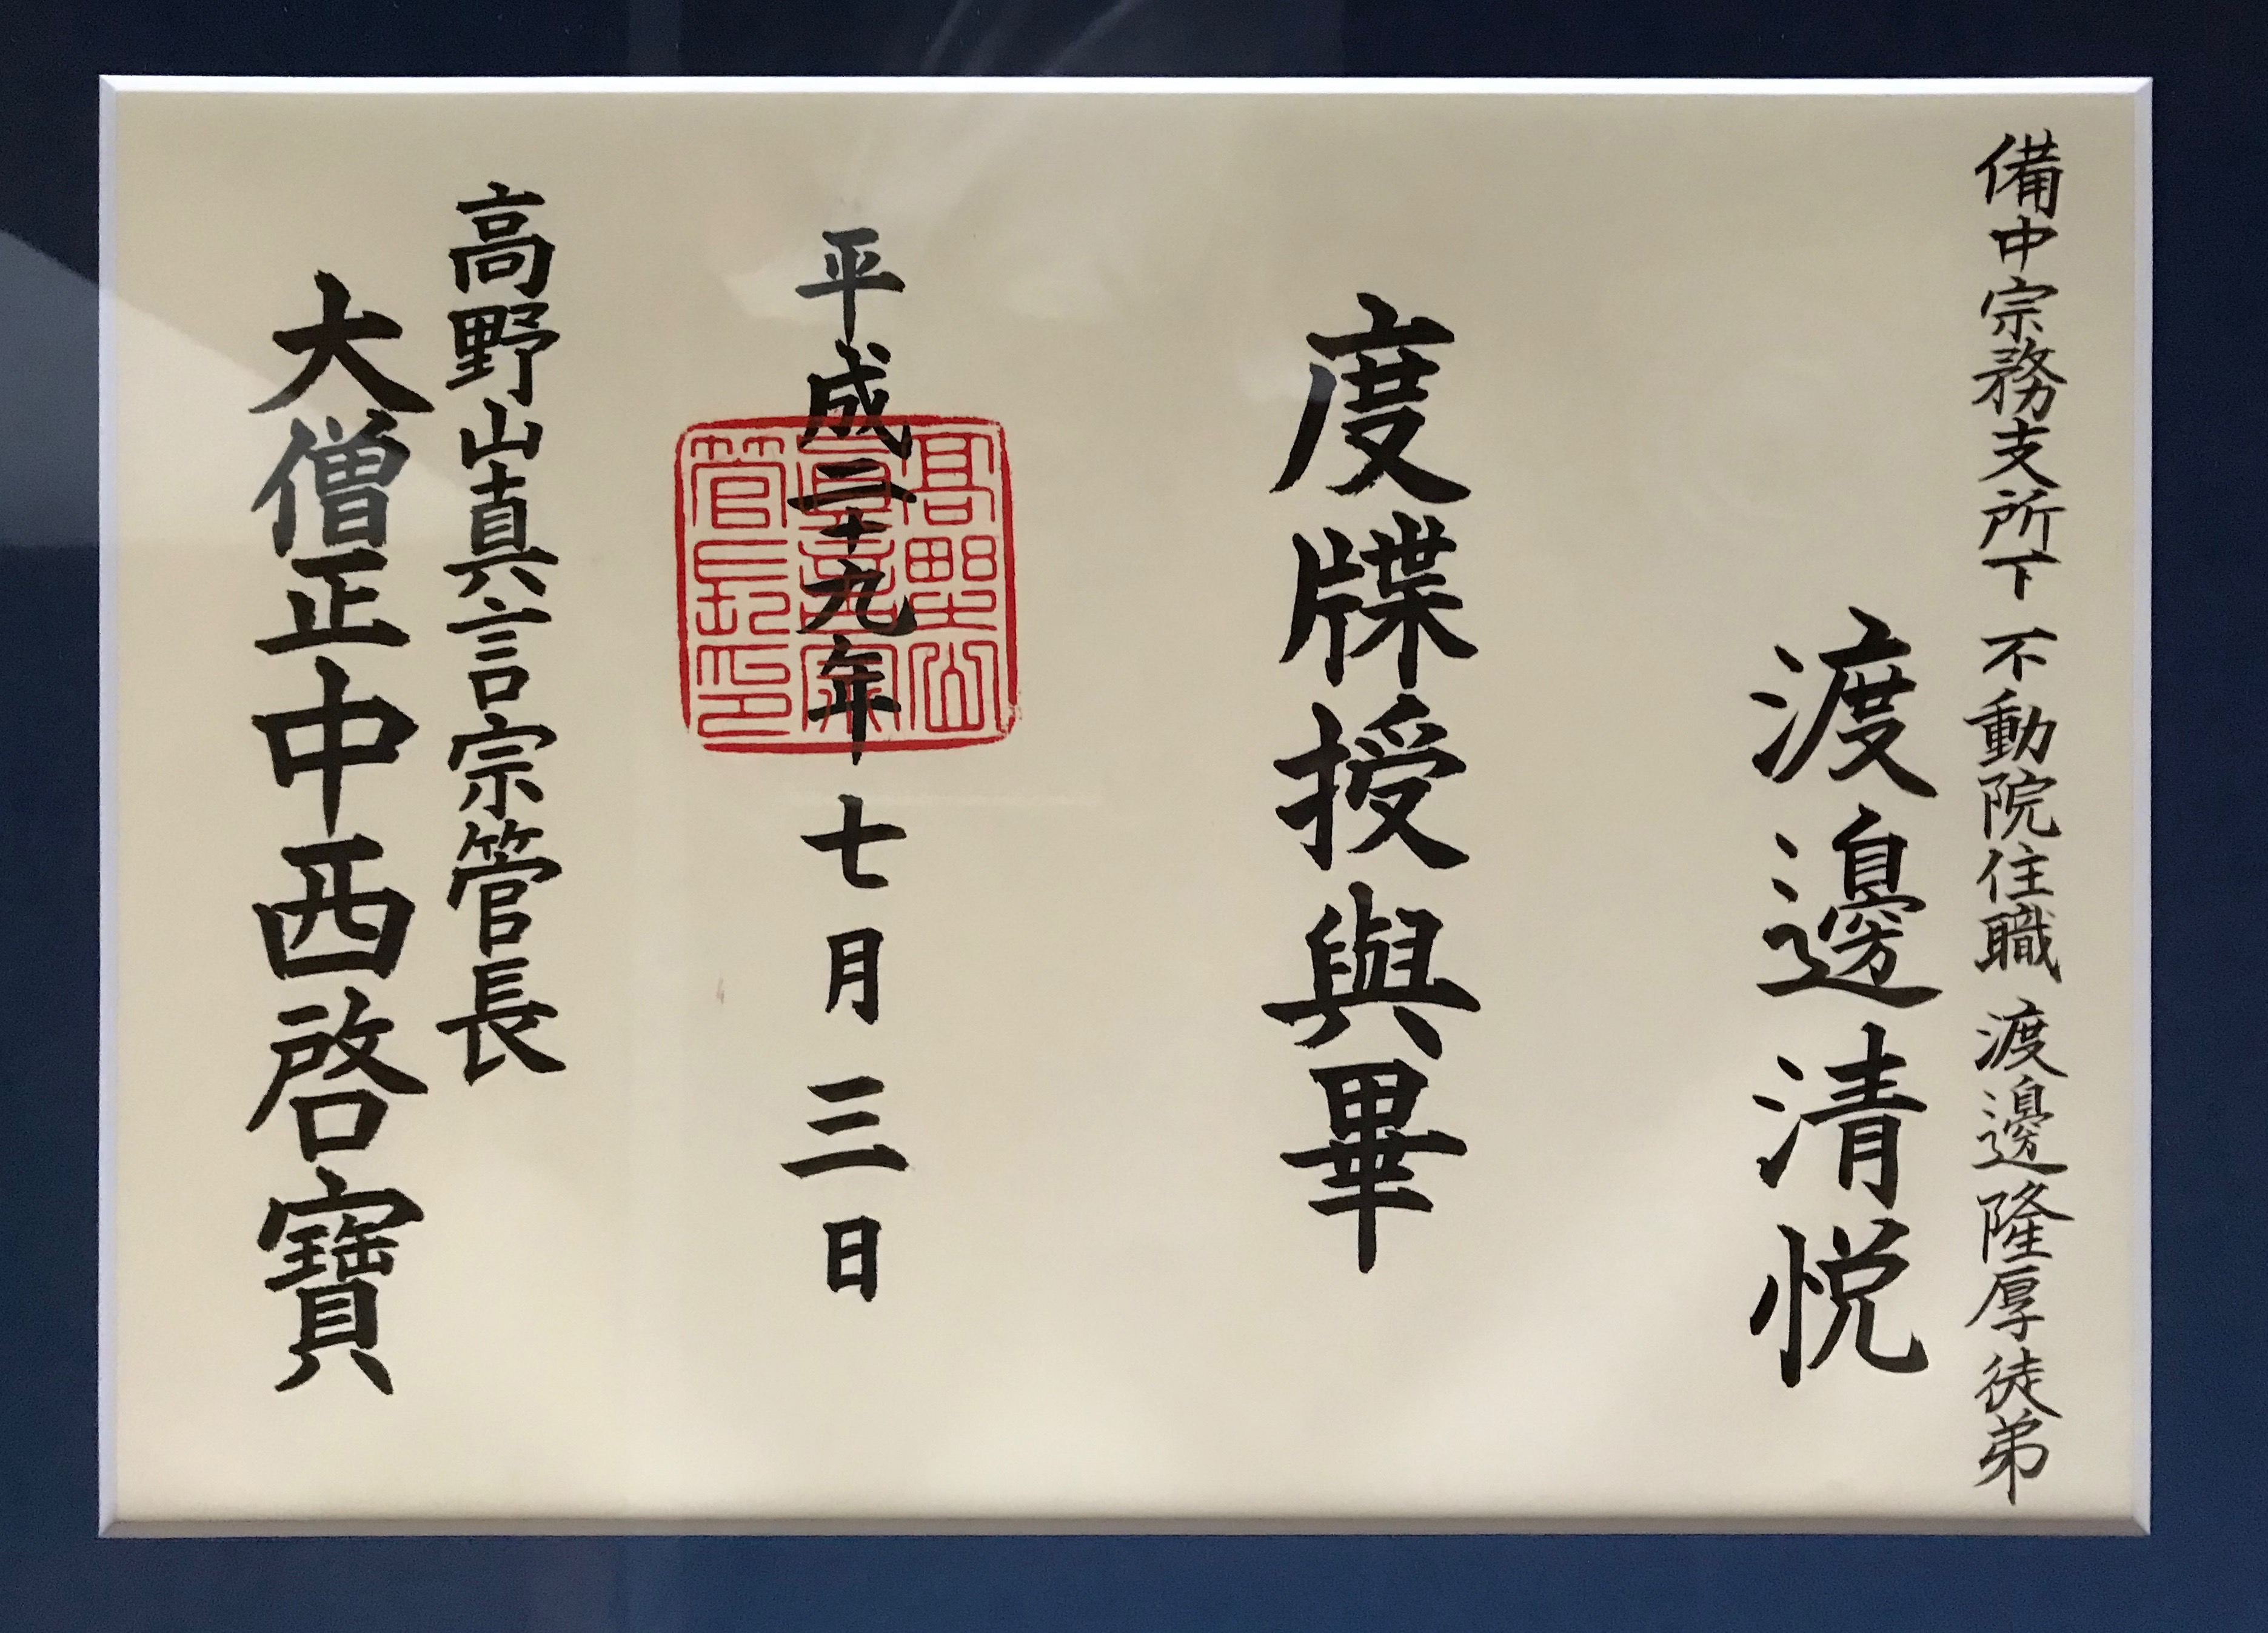 備中宗務支所下 不動院住職 渡邉隆厚徒弟
渡邉清悦
度牒授與畢
平成二十九年七月三日
高野山真言宗管長印
高野山真言宗管長
大僧正中西啓寶